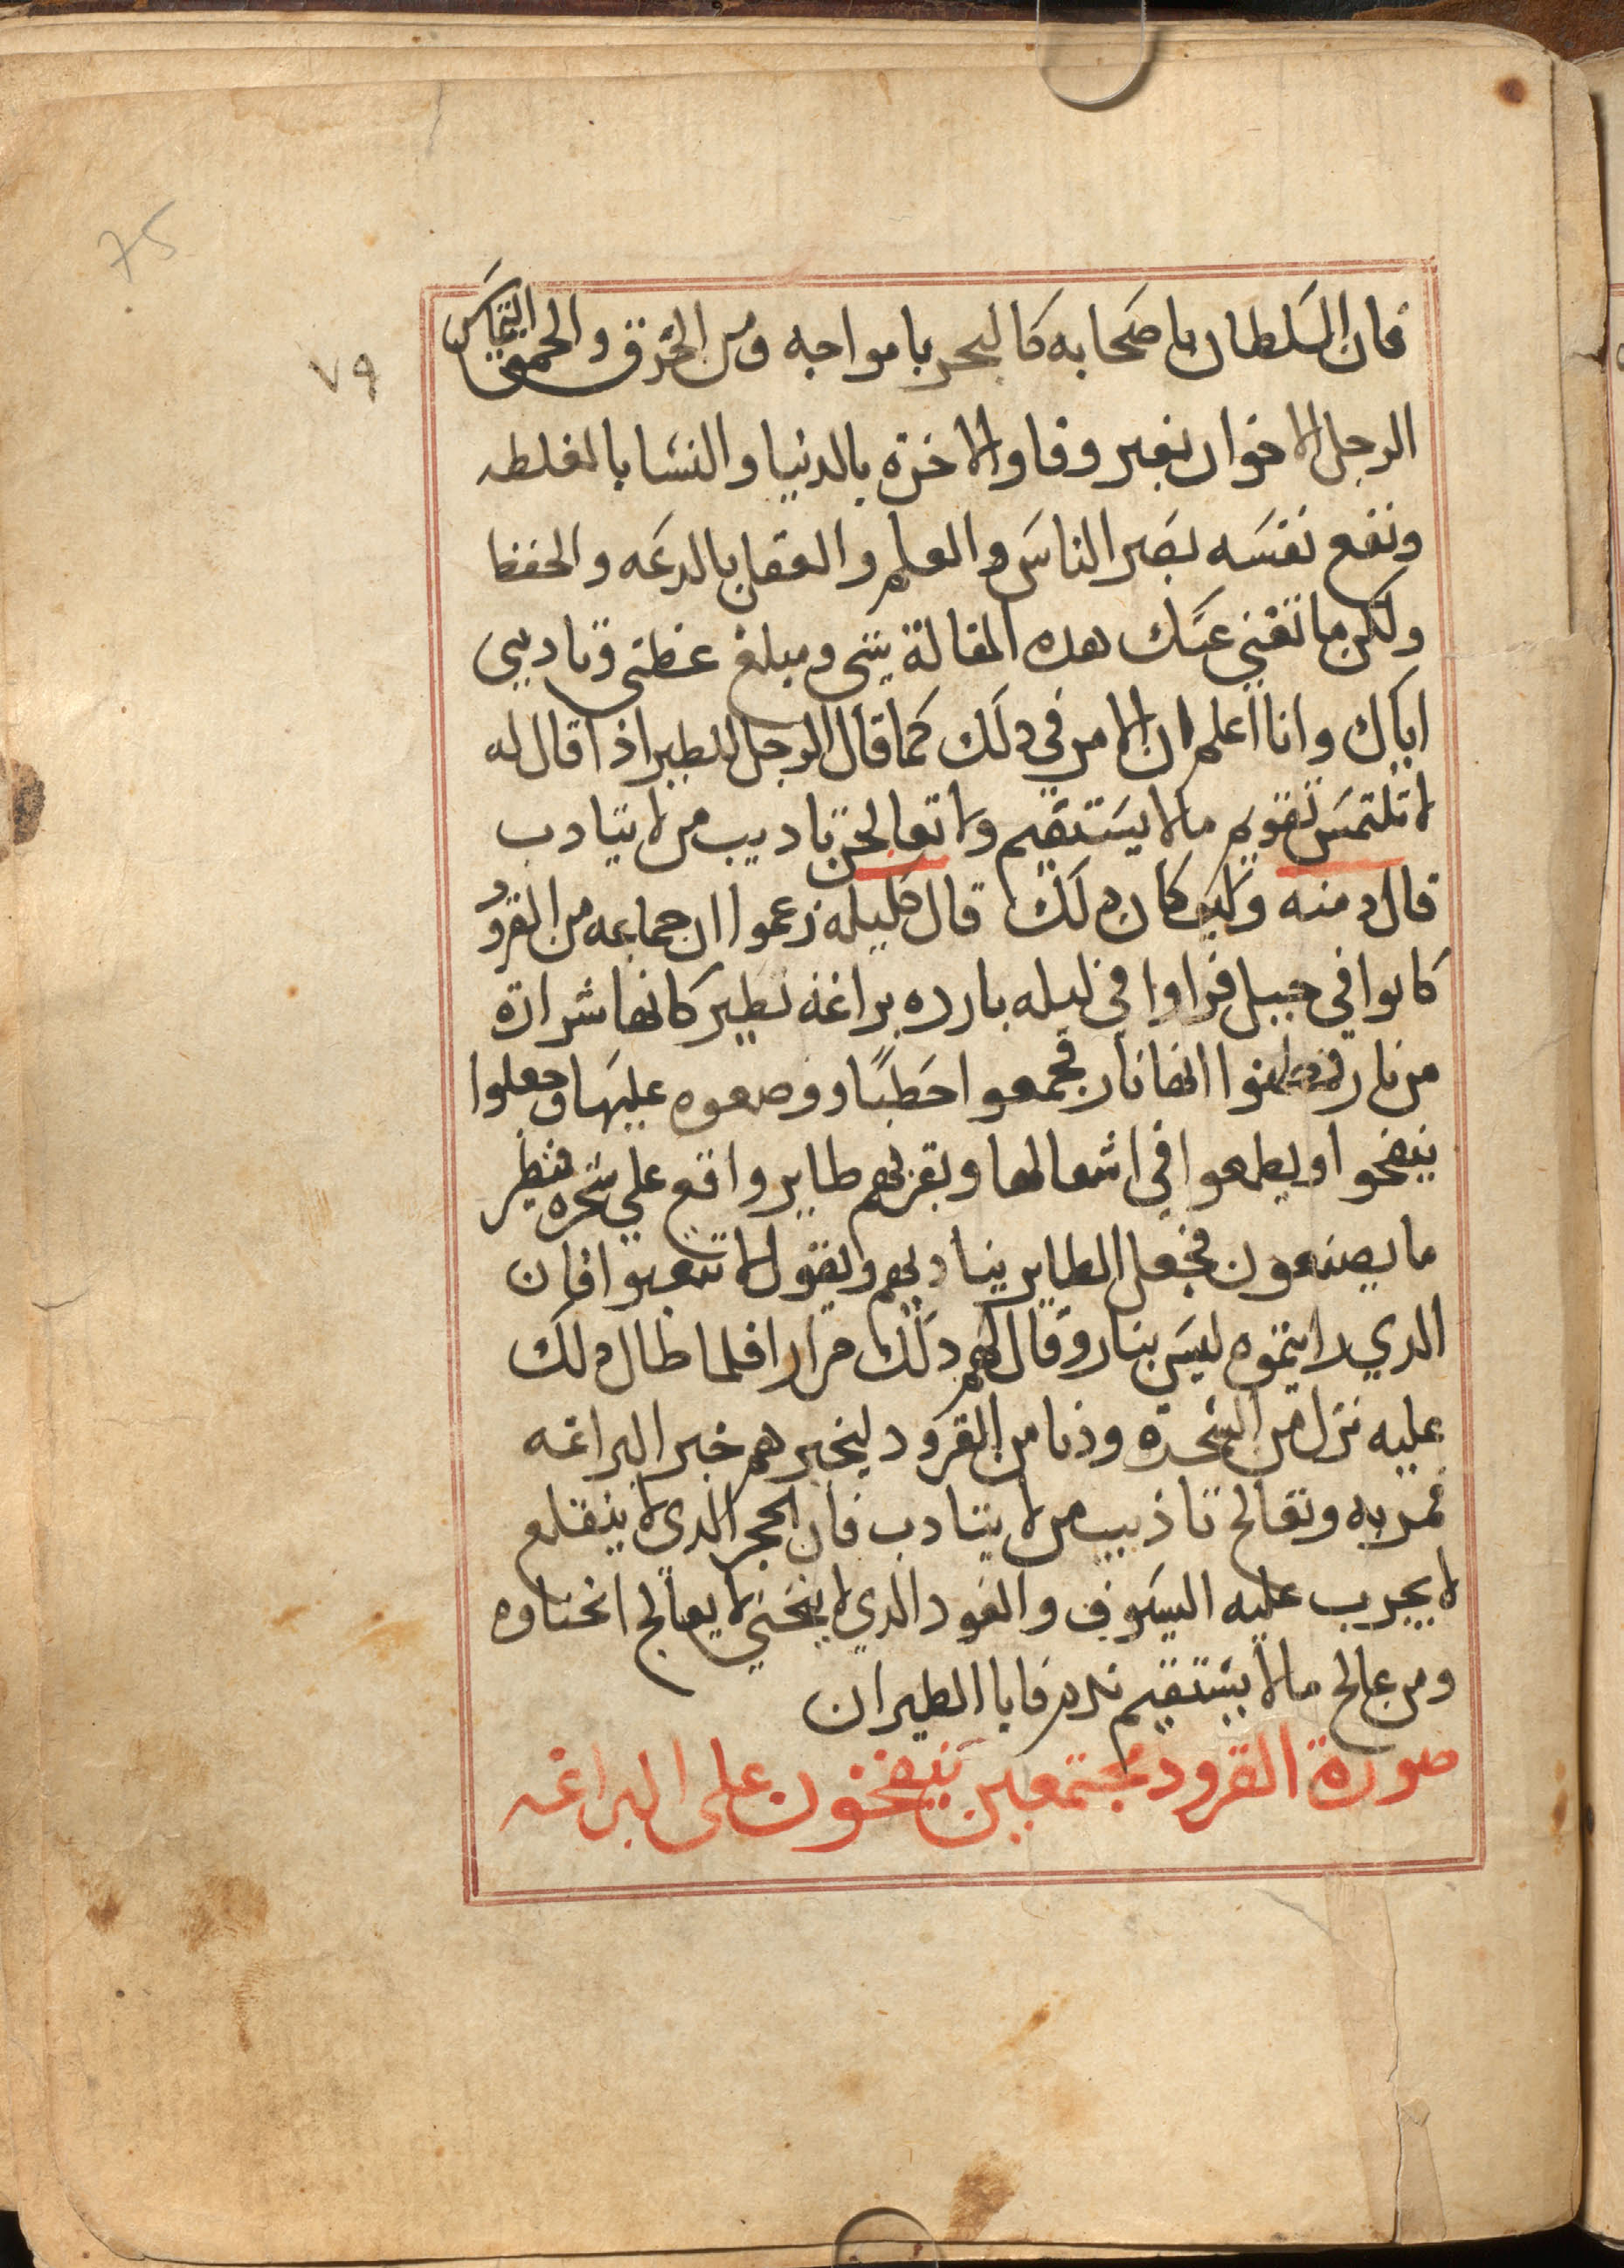 75
٧٩
فان السلطان باصحابه كالبحر بامواجه ومن الخرق والحمق التماس
الرجل الاخوان بغير وفا والاخرة بالدنيا والنسا بالغلطه
ونفع نفسه بضر الناس والعلم والفقا بالدعه والحفظ
ولكن ما تغني عنك هده المقالة شي ومبلغ عظتي وتاديبي
اياك وانا اعلم ان الامر في دلك كما قال الرجل للطير اذا قال له
لا تلتمس تقويم مالا يستقيم ولا تعالجن تاديب من لا يتادب
قال دمنه وكيف كان دلك قال كليله زعموا ان جماعه من القرود
كانوا في جبل فراوا في ليله بارده براغة تطير كانها شرارة
من نار فظنوا انها نار فجمعوا حطبًا ووضعوه عليها وجعلوا
ينفخوا ويطمعوا في اشعالها وبقربهم طاير واقع علي شجره فنظر
ما يصنعون فجعل الطاير يناديهم ويقول لا تتعبوا فان
الدي رايتموه ليس بنار وقال لهم دلك مرارا فلما طال دلك
عليه نزل من الشجرة ودنا من القرود ليخبرهم خبر البراغه
فمر به وتعالج تاذيب من لا يتادب فان الحجر الدي لا ينقلع
لا يجرب عليه السيوف والعود الدي لا ينحني لا يعالج انحناوه
ومن عالج مالا يستقيم ندم فابا الطيران
صورة القرود مجتمعين ينفخون على البراغه